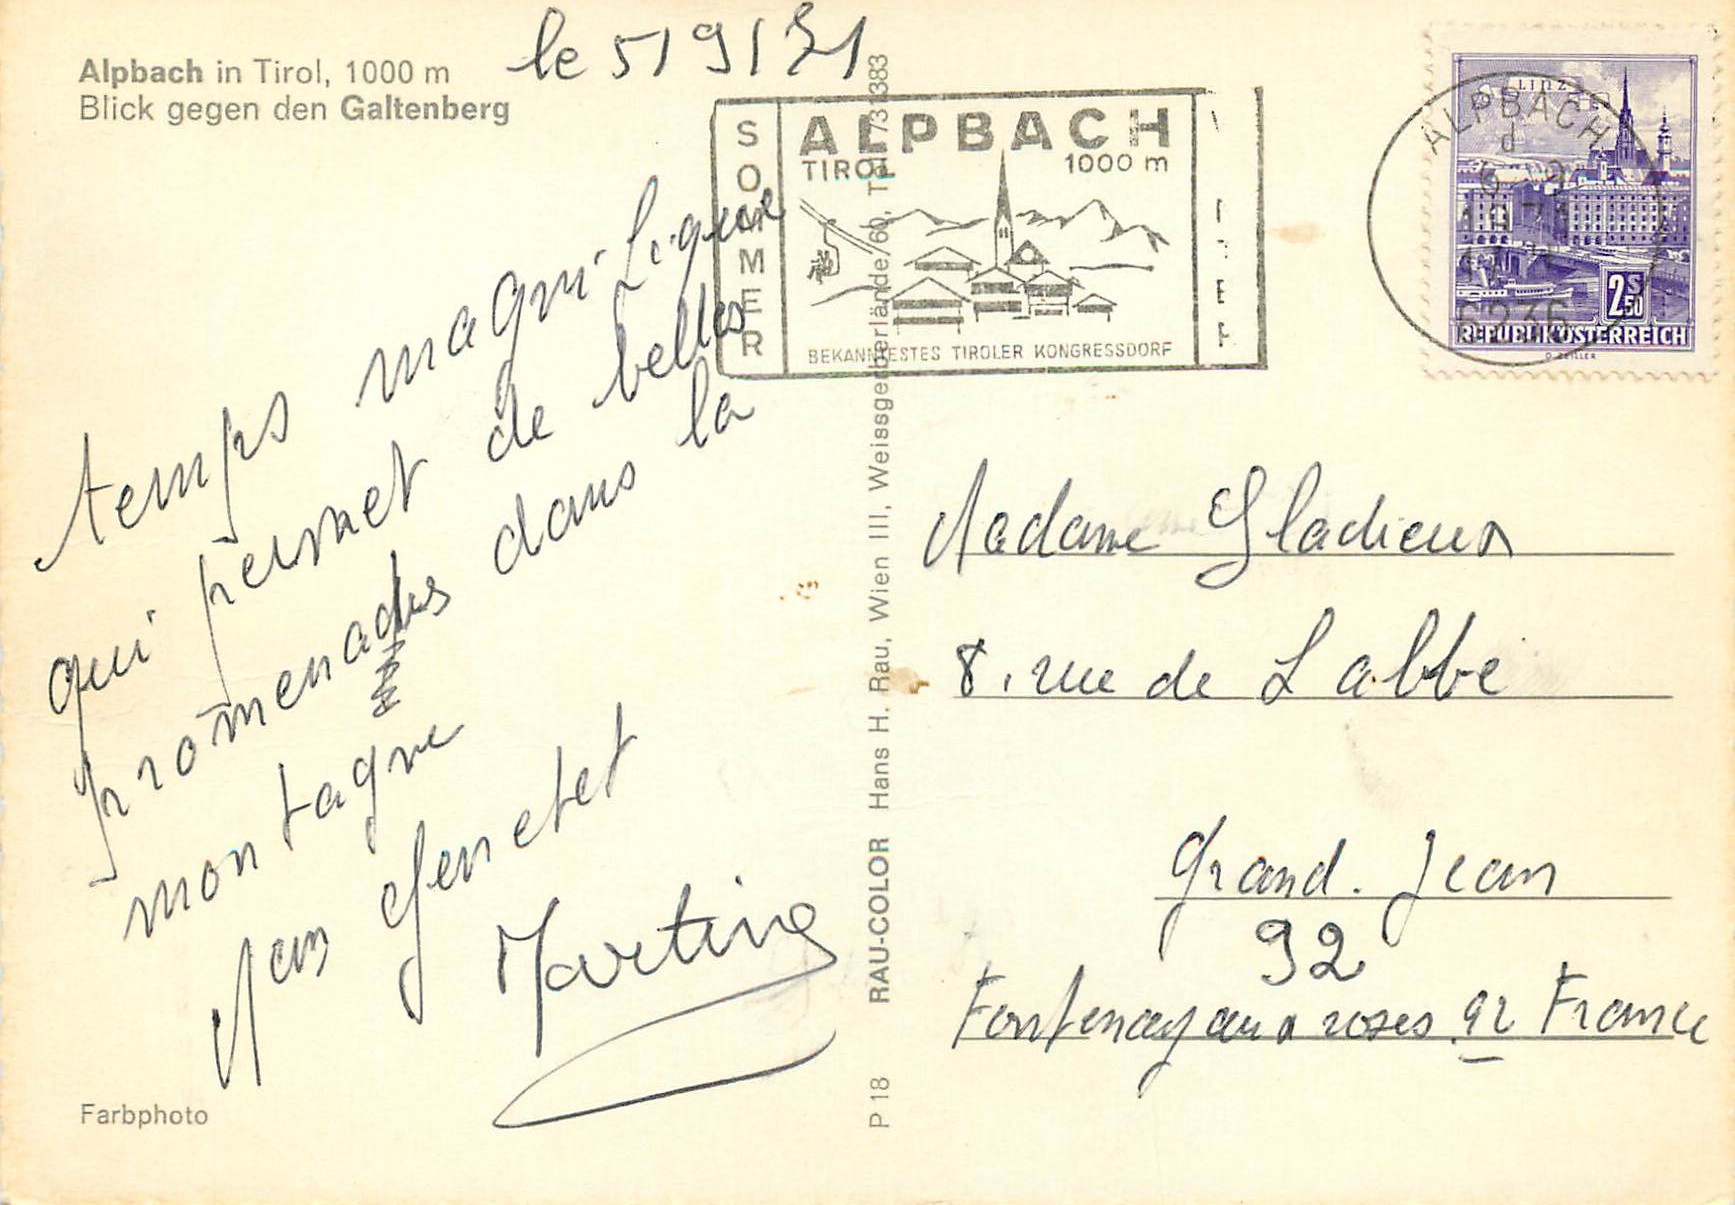 Alpbach in Tirol, 1000 m
Blick gegen den Galtenberg
le 5/9/71
temps magnifique
qui permet de belles
promenades dans la
montagne
Martine
Farbphoto
SOMMER
ALPBACH
TIROL 1000 m
BEKANNTESTES TIROLER KONGRESSDORF
LINZ
ALPBACH
d
1971
6236
2S50
REPUBLIK ÖSTERREICH
P 18 RAU-COLOR Hans H. Rau, Wien III, Weissgerberlände/60, Tel. 731383
Madame Gladieux
8, rue de L abbé
Grand. Jean
92
Fontenay aux roses 92 France